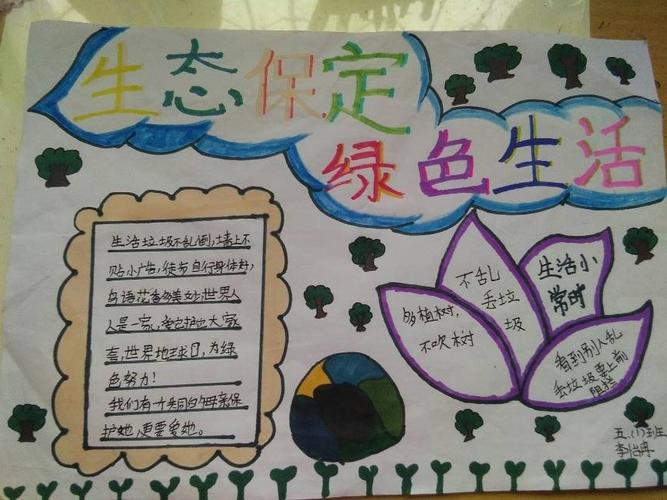 生态保定
绿色生活
生活垃圾不乱倒,墙上不
贴小广告,徒步自行身体好,
鸟语花香美妙世界人
人是一家,爱护大家
套,世界地球日,为绿
色努力!
我们有
护她,更要爱她。
够植树,
不吹树
不乱
丢垃
圾
生活小
常时
看到别人乱
丢垃圾要上前
阻挡
五、(1)班
李怡冉